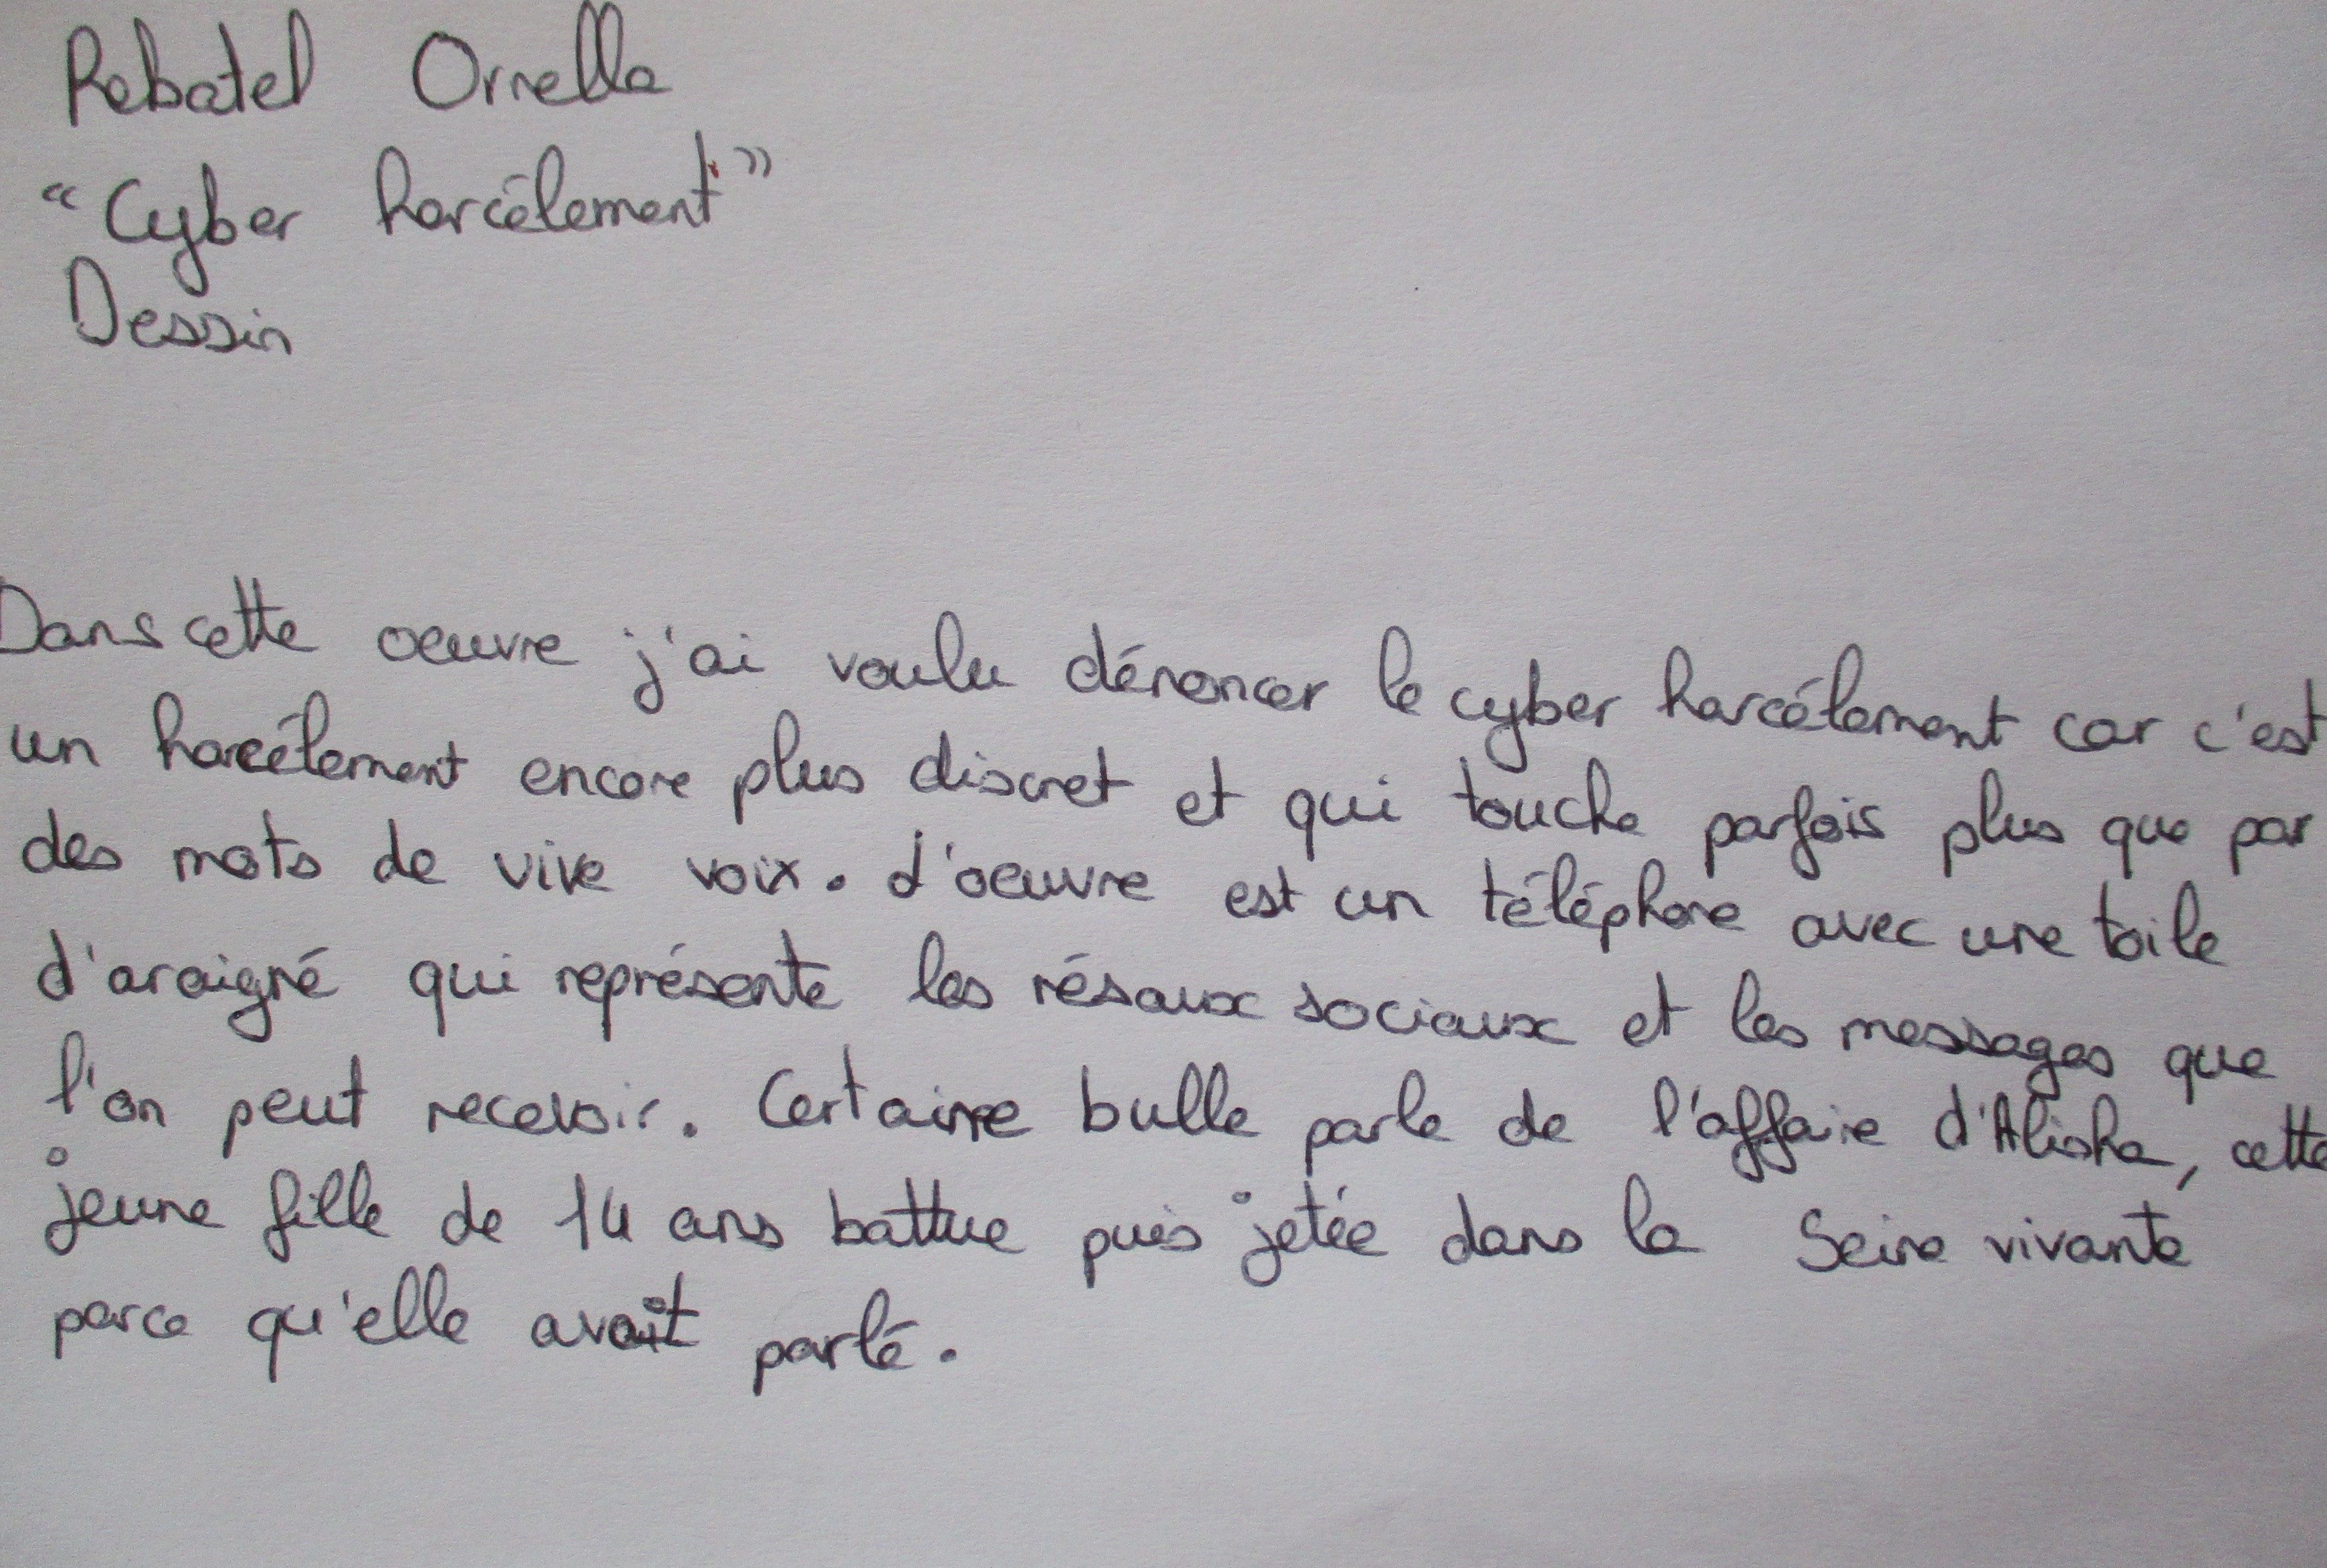 Rebatel Ornella
"Cyber harcélement"
Dessin
Dans cette oeuvre j'ai voulu dénoncer le cyber harcélement car c'est
un harcélement encore plus discret et qui touche parfois plus que par
des mots de vive voix. L'oeuvre est un téléphone avec une toile
d'araigné qui représente les résaux sociaux et les messages que
l'on peut recevoir. Certaine bulle parle de l'affaire d'Alisha, cette
jeune fille de 14 ans battue puis jetée dans la Seine vivante
parce qu'elle avait parlé.